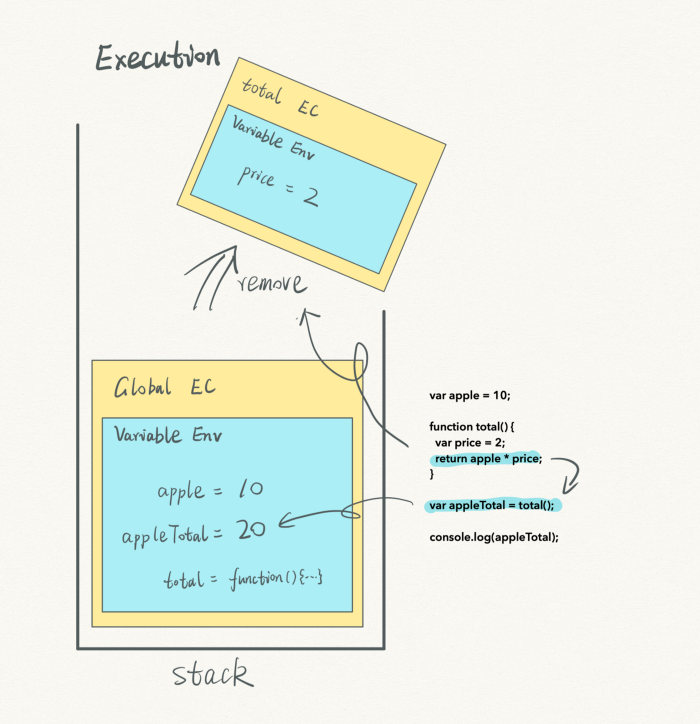 Execution
total EC
Variable Env
price = 2
remove
Global EC
Variable Env
apple = 10
appleTotal = 20
total = function(){...}
stack
var apple = 10;
function total() {
var price = 2;
return apple * price;
}
var appleTotal = total();
console.log(appleTotal);